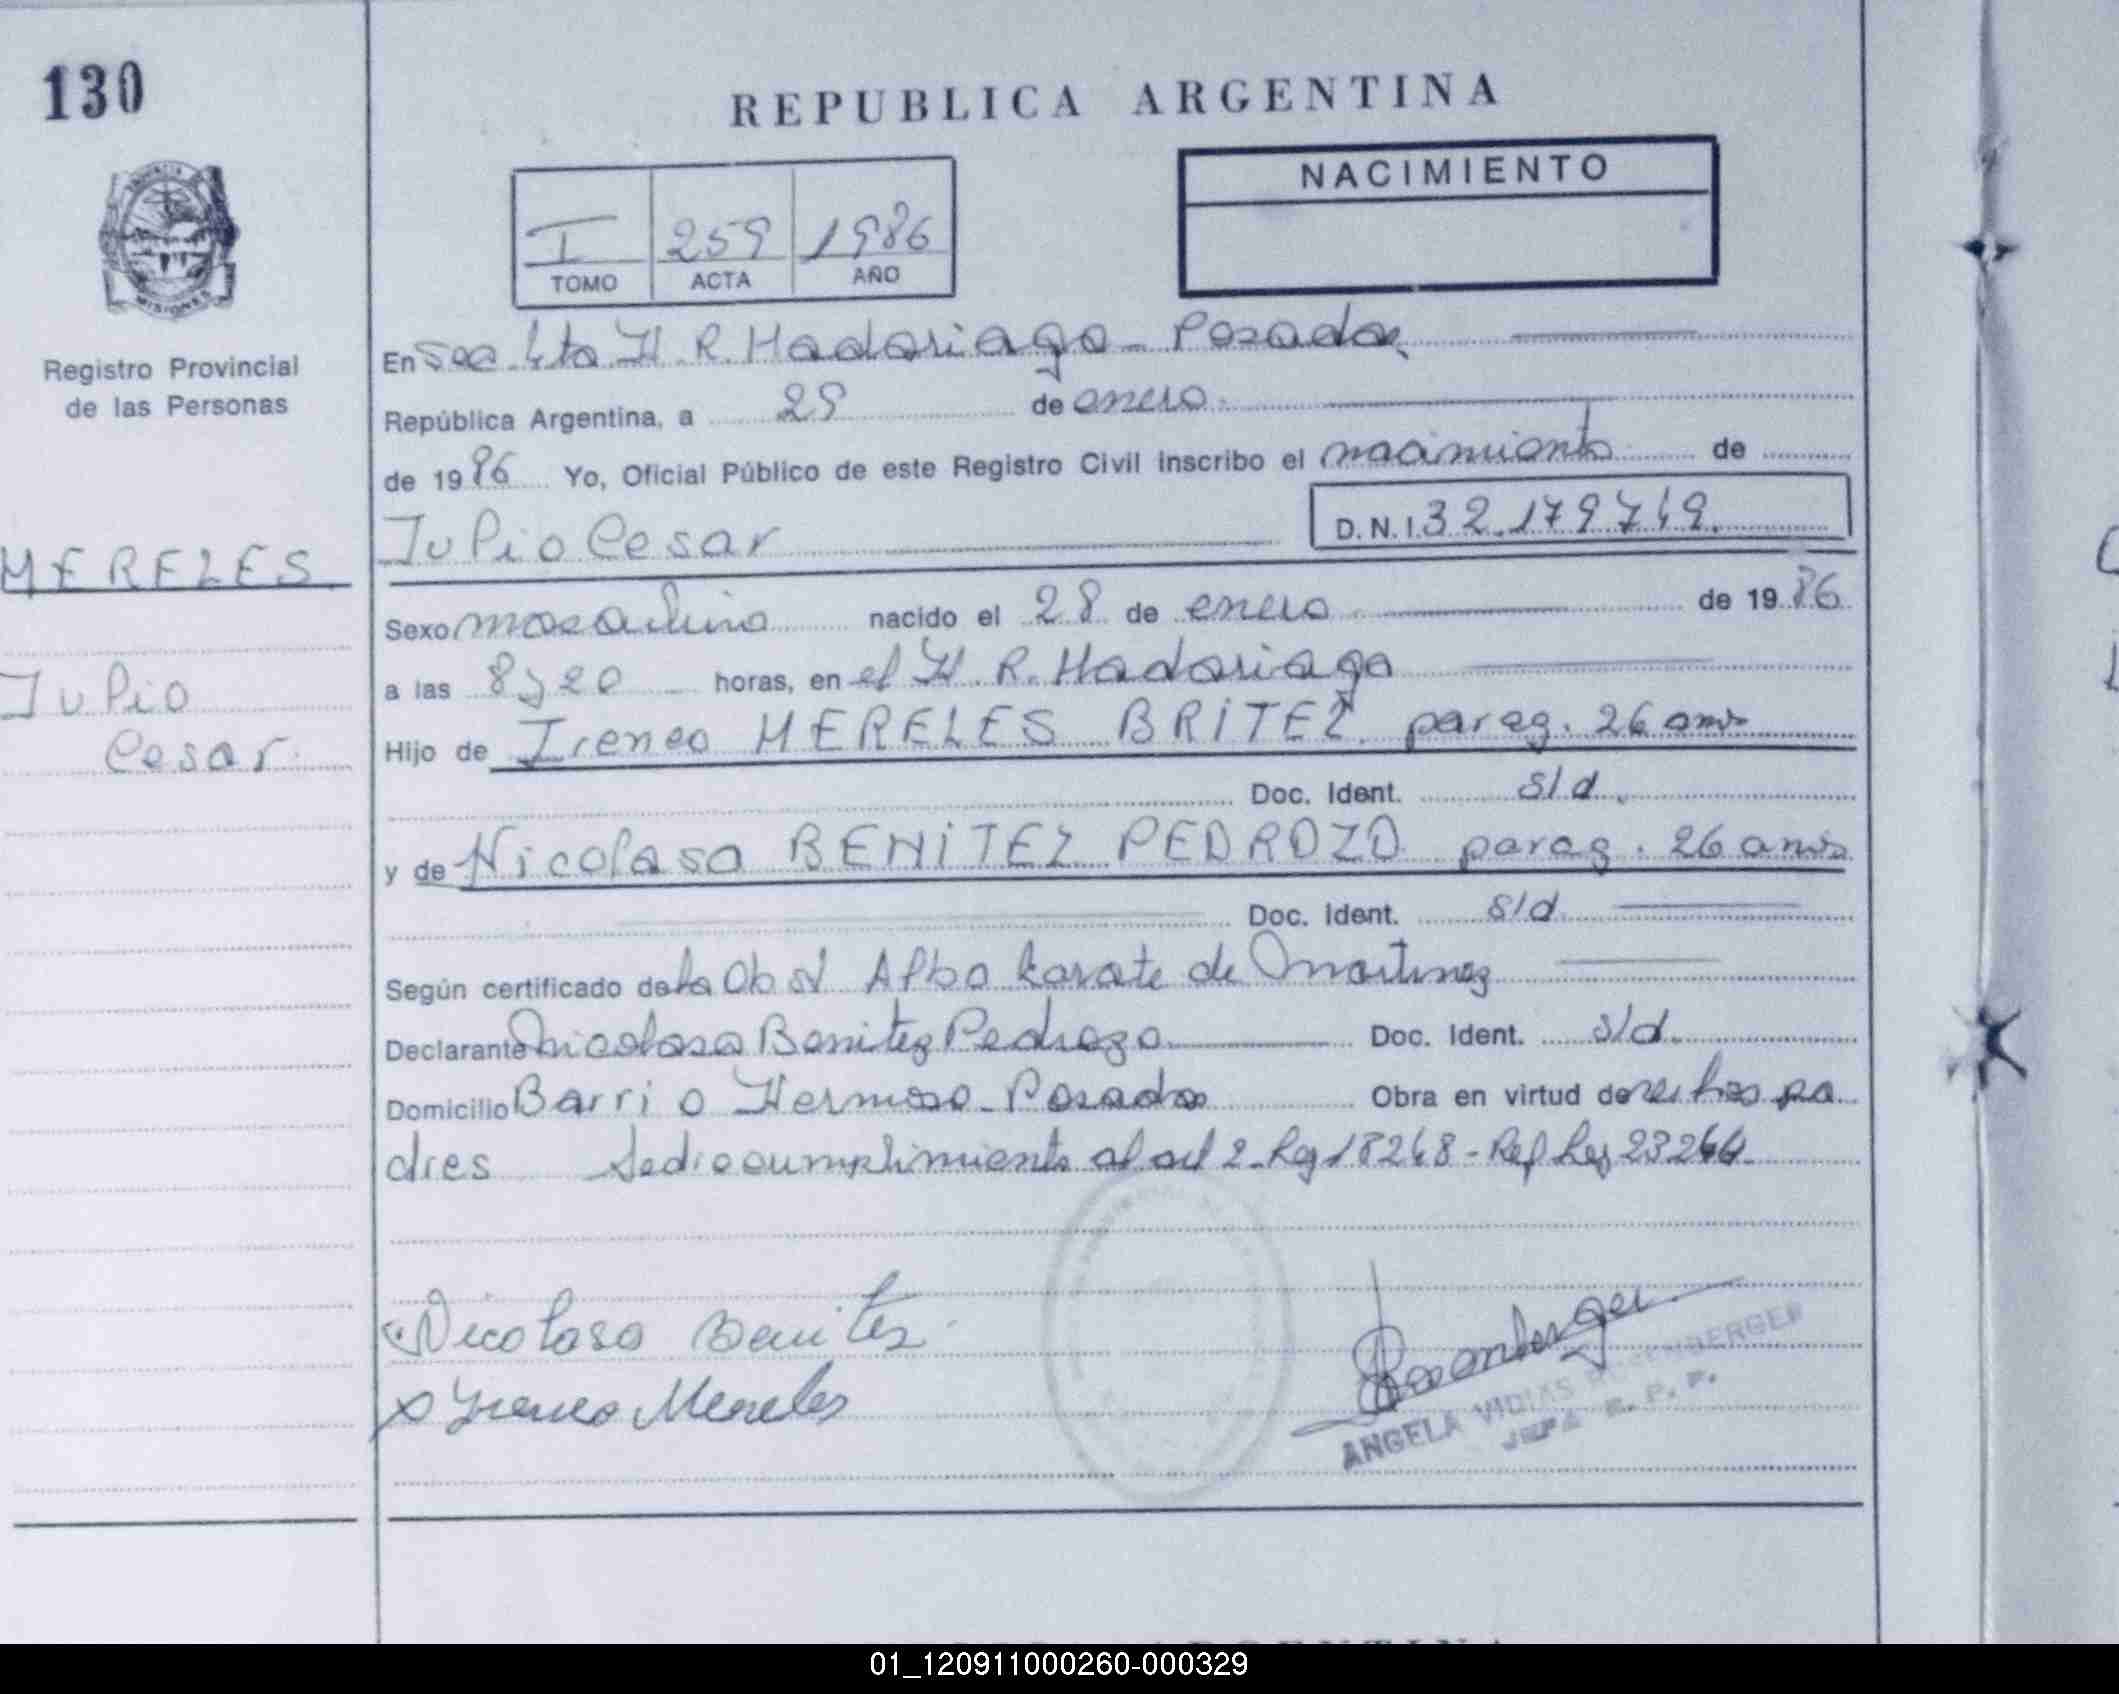 130
REPUBLICA ARGENTINA
NACIMIENTO
I 259 1986
TOMO ACTA AÑO
MISIONES
Registro Provincial
de las Personas
En Sec 4ta H. R. Madariaga - Posadas
República Argentina, a 29 de enero
de 1986 Yo, Oficial Público de este Registro Civil inscribo el nacimiento de
Julio Cesar D. N. I. 32.179.749.
MERELES
Julio
Cesar
Sexo masculino nacido el 28 de enero de 1986
a las 8 y 20 horas, en el H. R. Madariaga
Hijo de Ireneo MERELES BRITEZ parag. 26 años
Doc. Ident. s/d.
y de Nicolasa BENITEZ PEDROZO parag. 26 años
Doc. Ident. s/d
Según certificado de la Obst Alba de Martinez
Declarante Nicolasa Benitez Pedrozo Doc. Ident. s/d.
Domicilio Barrio Hermoso - Posadas Obra en virtud de ser los pa
dres Se dio cumplimiento al art 2 - Ley 18248 - Ref Ley 23264
Nicolasa Benites
x Ireneo Mereles
Rosenberger
ANGELA VIDIAS ROSENBERGER
JEFA R. P. P.
01_120911000260-000329